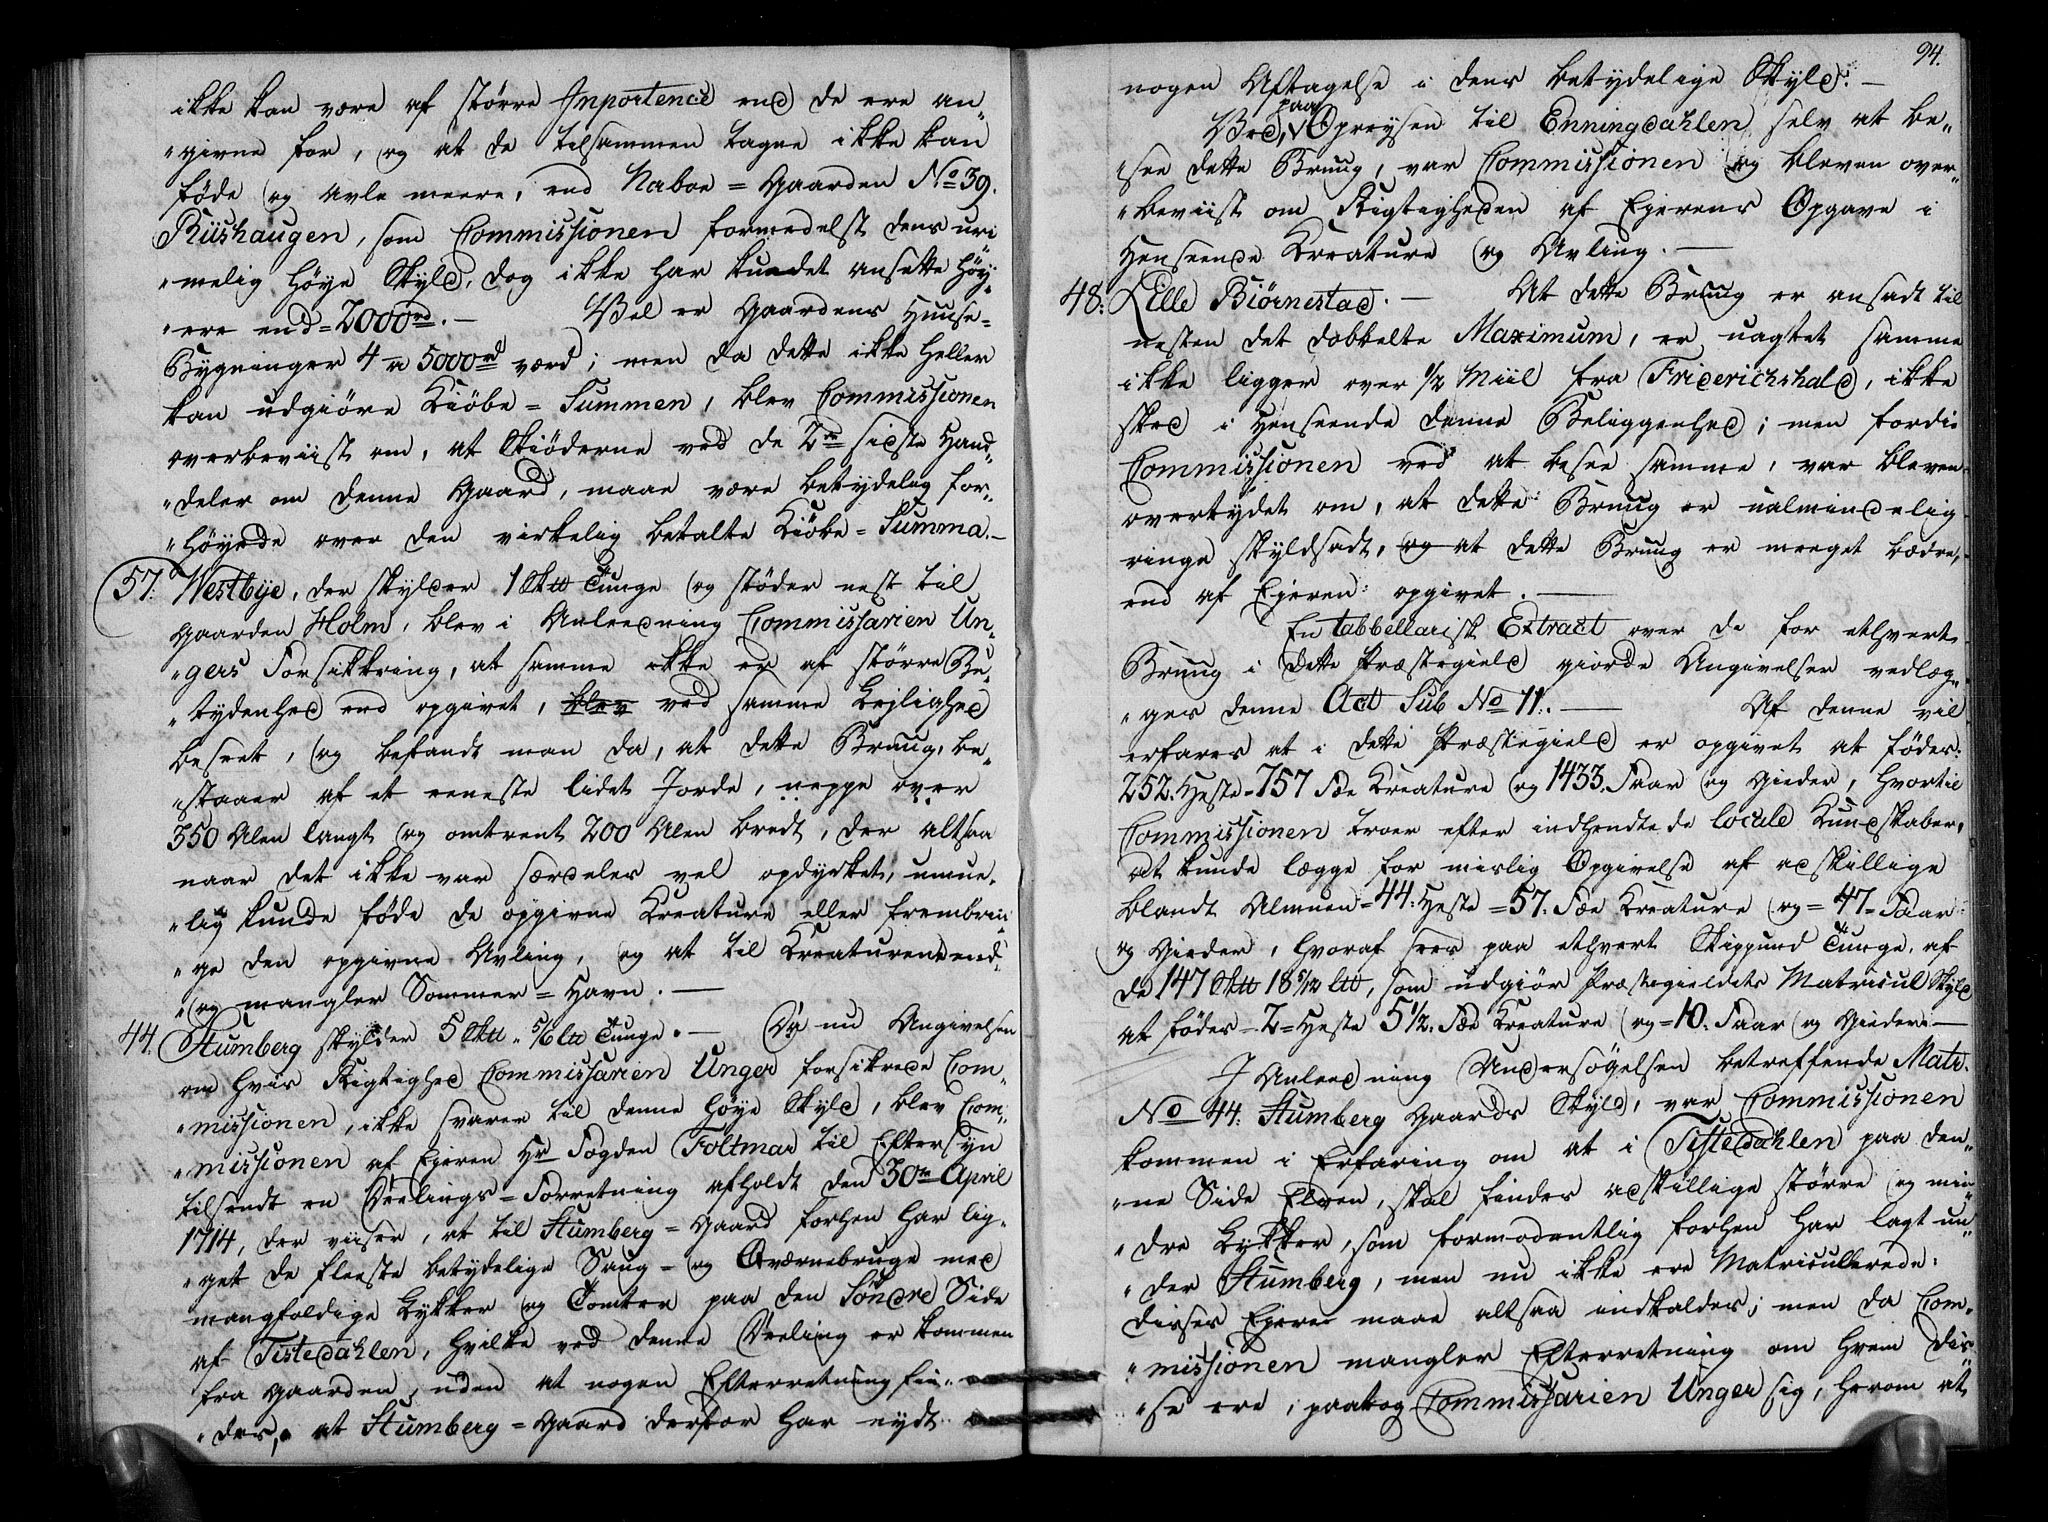 ikke kan være af større Inportence end de ere an„
„givne for, og at de tilsammen tagne ikke kan
føde og avle meere, end Naboe = Gaarden No 39.
Riishaugen, som Commissionen formedelst dens uri
„melig høye Skyld, dog ikke har kundet ansette høy„
„ere end = 2000 rd. — Vel er Gaardens Huuse=
Bygninger 4 a 5000 rd værd; men da dette ikke heller
kan udgiöre Kiöbe = Summen, blev Commissionen
overbeviist om, at Skiöderne ved de 2de sidste Hand„
„deler om denne Gaard, maae være betydelig for„
„høyede over den virkelig betalte Kiöbe = Summa. —
57. Westbye, der skylder 1 Sktt Tunge og støder nest til
Gaarden Holm, blev i Anleedning Commissarien Un„
„gers Forsikkring, at samme ikke er af større Be„
„tydenhed end opgivet, blev ved samme Lejlighed
beseet, og befandt man da, at dette Bruug, be„
„staaer af et eeneste lidet Jorde, neppe over
350 Alen langt og omtrent 200 Alen bredt, der altsaa
naar det ikke var særdeles vel opdyrket, umue„
„lig kunde føde de opgivne Kreature eller frembrin„
„ge den opgivne Avling, og at til Kreaturene end„
„og mangler Sommer = Havn. —
44. Stumberg skylder 5 Sktt „ 5/6 ltt Tunge. — Da nu Angivelsen
om hvis Rigtighed Commissarien Unger forsikrede Com„
„missionen, ikke svarer til denne høye Skyld, blev Com„
„missionen af Ejeren Hr Fogden Foltmar til Eftersyn
tilsendt en Deelings = Forretning afholdt den 30te April
1714, der viiser, at til Stumberg = Gaard forhen har lig„
„get de fleeste betydelige Saug = og Qværnebruge med
mangfoldige Lykker og Tomter paa den Söndre Side
af Tistedahlen, hvilke ved denne Deeling er kommen
fra Gaarden, uden at nogen Efterretning fin„
„des, at Stumberg = Gaard derfor har nydt
94.
nogen Aftagelse i dens betydelige Skyld. —
Ved paa Opreysen til Enningdahlen selv at be„
„see dette Bruug, var Commissionen og bleven over„
„beviist om Rigtigheden af Ejerens Opgave i
Henseende Kreature og Avling. —
48. Lille Biørnestad. — At dette Bruug er ansadt til
nesten det dobbelte Maximum, er uagtet samme
ikke ligger over 1/2 Miil fra Friderichshald, ikke
skeed i Henseende denne Beliggenhed; men fordi
Commissionen ved at besee samme, var bleven
overtydet om, at dette Bruug er ualmindelig
ringe skyldsadt, og at dette Bruug er meeget bædre,
end af Ejeren opgivet. —
En tabbellarisk Extract over de for ethvert
Bruug i dette Præstegield giorde Angivelser vedlæg„
„ges denne Act Sub No 11. — Af denne vil
erfares at i dette Præstegield er opgivet at födes:
252. Heste = 757 Fæe Kreature og 1433. Faar og Gieder, hvortil
Commissionen troer efter indhendtede locale Kundskaber,
at kunde lægge for mislig Opgivelse af adskillige
blandt Almuen = 44. Heste = 57. Fæe Kreature og = 47 = Faar
og Gieder, hvoraf sees paa ethvert Skippund Tunge, af
de 147 Sktt 18 5/12 ltt, som udgiör Præstegieldets Matricul Skyld
at födes = 2 = Heste 5 1/2. Fæe Kreature og = 10. Faar og Gieder. —
I Anleedning Undersøgelsen betreffende Matr.
No 44. Stumberg Gaards Skyld, var Commissionen
kommen i Erfaring om at i Tistedahlen paa den„
„ne Side Elven, skal findes adskillige større og min„
„dre Lykker, som formodentlig forhen har lagt un„
„der Stumberg, men nu ikke ere Matriculerede.
Disses Ejere maae altsaa indkaldes; men da Com„
„missionen mangler Efterretning om hvem dis„
„se ere, paatog Commissarien Unger sig, herom at